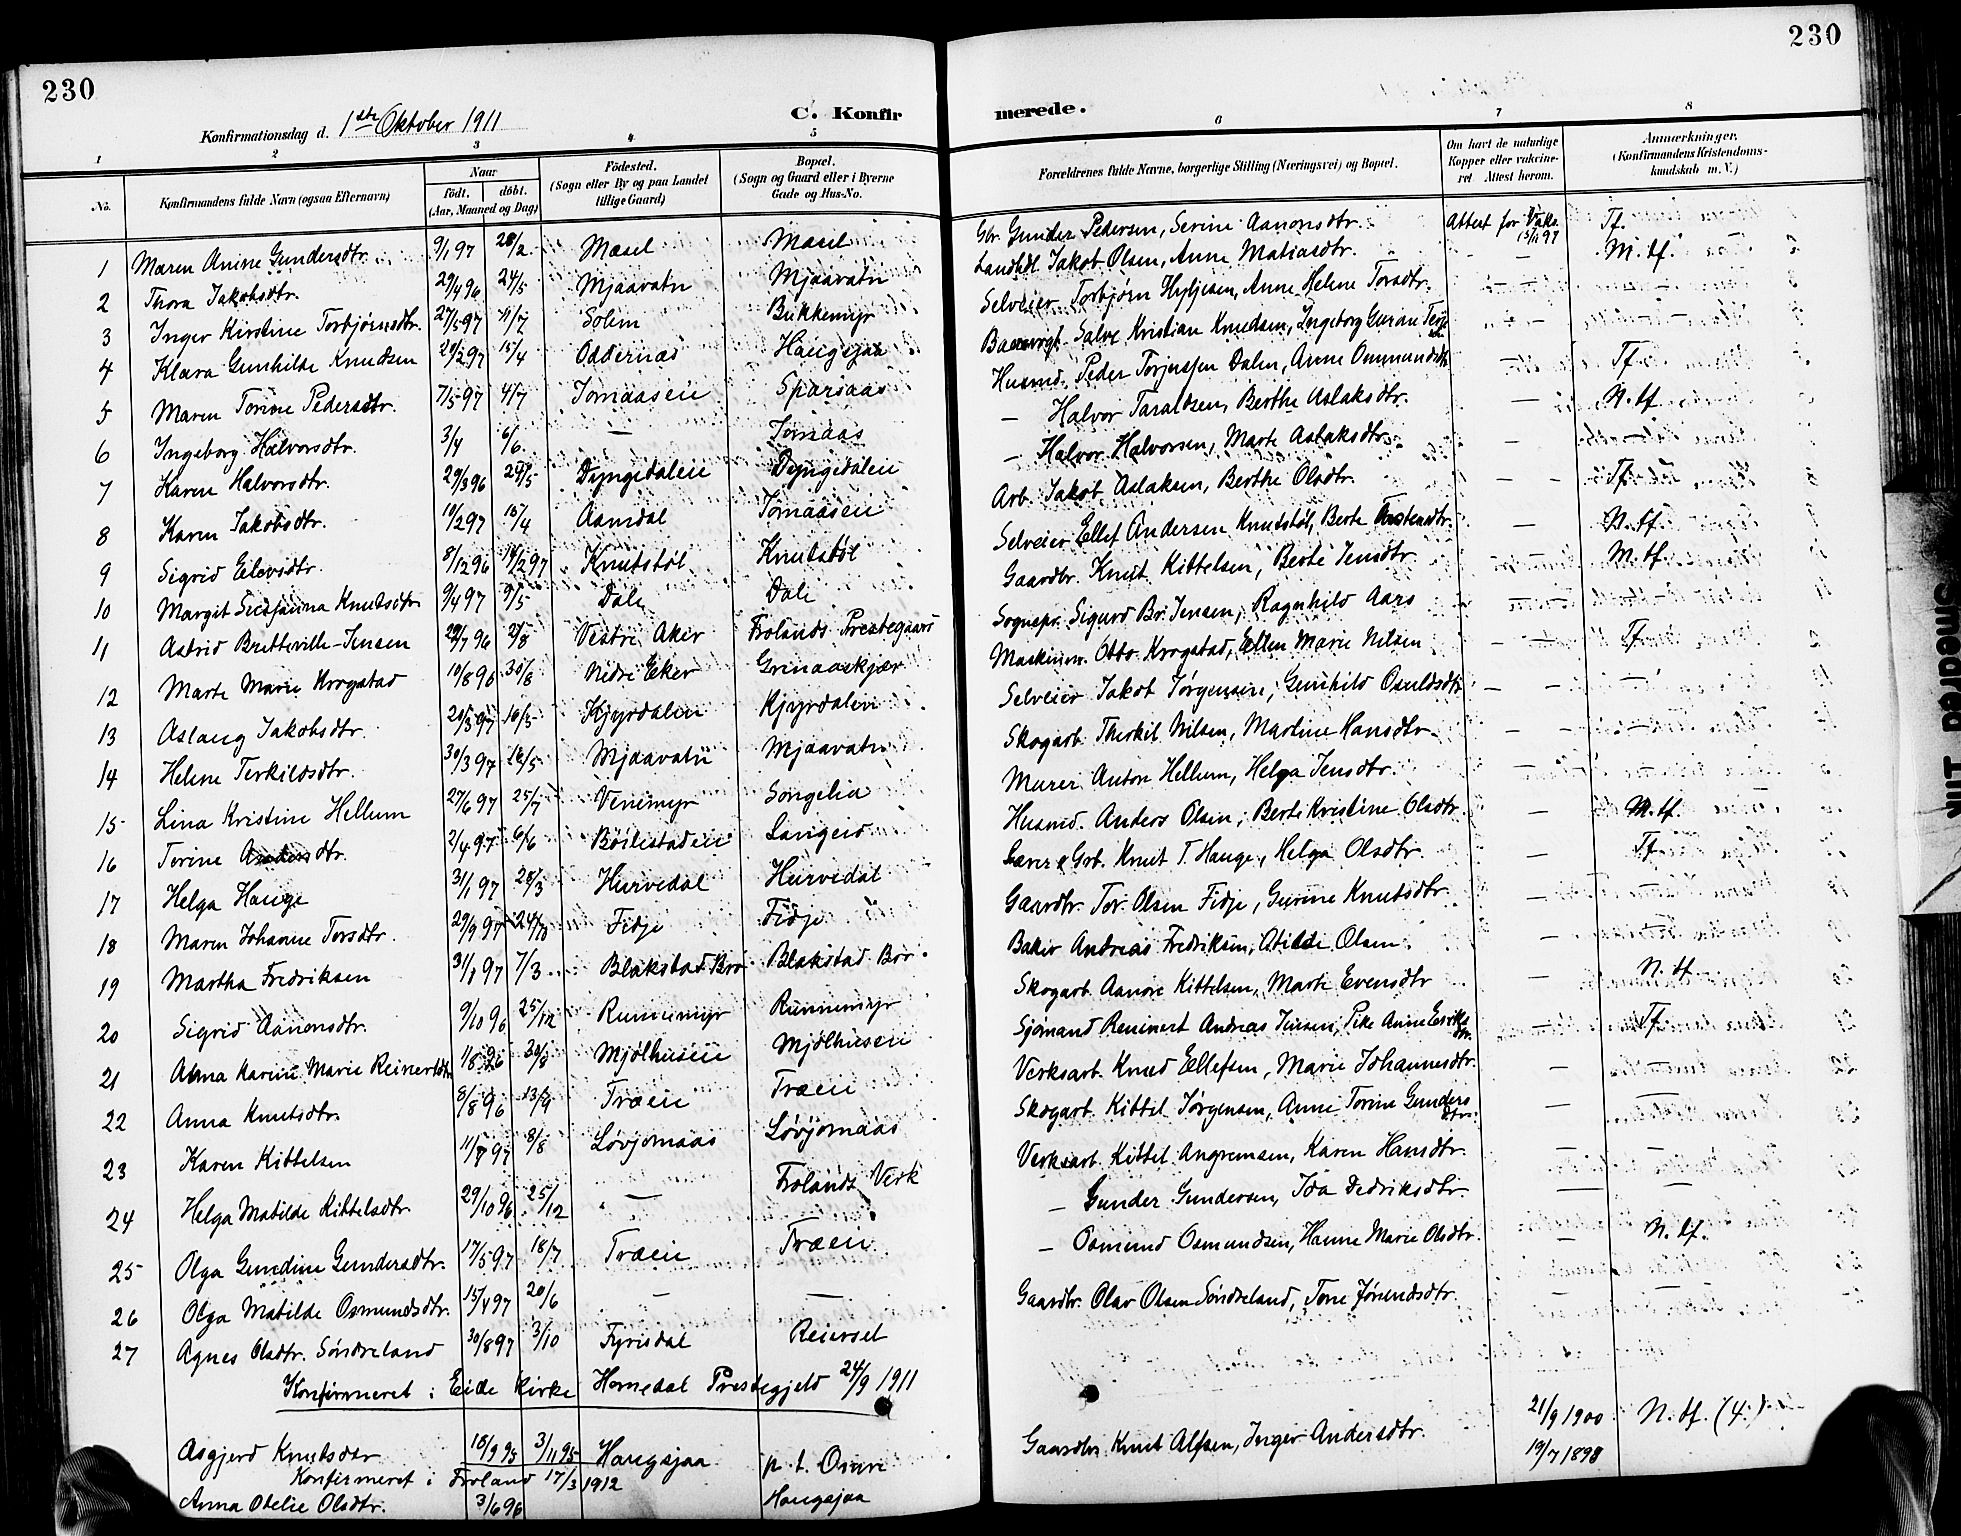 230
230
Konfirmationsdag d. 1ste Oktober 1911
C. Konfirmerede.
1 2 3 4 5 6 7 8
No. Konfirmandens fulde Navn (ogsaa Efternavn) Naar födt. döbt. (Aar, Maaned og Dag) Födested. (Sogn eller By og paa Landet tillige Gaard) Bopæl. (Sogn og Gaard eller i Byerne Gade og Hus-No. Forældrenes fulde Navne, borgerlige Stilling (Næringsvei) og Bopæl. Om havt de naturlige Kopper eller vakcineret Attest herom. Anmærkninger. (Konfirmandens Kristendomskundskab m. V.)
1 Maren Anine Gundersdtr. 9/1 97 28/2 Mæsel Mæsel Gbr. Gunder Pedersen, Serine Aanonsdtr. Attest for Vaks. Tf.
2 Thora Jakobsdtr. 29/4 96 24/5 Mjaavatn Mjaavatn Landhdl. Jakob Olsen, Anne Matiasdtr. — — M. tf.
3 Inger Kirstine Torbjørnsdtr. 27/5 97 11/7 Solim Bukkemyr Selveier Torbjørn Hyljesen, Anne Helene Torsdtr. — —
4 Klara Gunhilde Knudsen 28/2 97 15/4 Oddernæs Haugsjaa Salve Kristian Knudsen, Ingeborg Gurine — —
5 Maren Torine Pedersdtr. 7/5 97 4/7 Jomaasen Sparsaas Husmd. Peder Torjussen Dalen, Anne Ommundsdtr — Tf.
6 Ingeborg Halvorsdtr. 3/4 6/6 — Jomaas — Halvor Taraldsen, Berthe Aslaksdtr. — N. tf.
7 Karen Halvorsdtr. 29/3 96 29/5 Dyngedalen Dyngedalen — Halvor Halvorsen, Marte Aslaksdtr. —
8 Karen Jakobsdtr. 10/2 97 15/4 Aamdal Jomaasen Arb. Jakob Aslaksen, Berthe Olsdtr. — — Tf.
9 Sigrid Eilevsdtr. 8/12 96 14/2 97 Knutstøl Knutstøl Selveier Ellef Andersen Knutstøl, Berte — N. tf.
10 Margit Susanna Knutsdtr 9/4 97 9/5 Dale Dale Gaardbr. Knut Kittelsen, Berte Jensdtr — M. tf.
11 Astrid Bretteville-Jensen 29/7 96 2/8 Vestre Aker Frolands Prestegaard Sognepr. Sigurd Br. Jensen, Ragnhild Aars —
12 Marte Marie Krogstad 10/8 96 30/8 Nedre Eker Grinaaskjær Maskinm. Otto Krogstad, Ellen Marie Nilsen — — Tf.
13 Aslaug Jakobsdtr. 20/3 97 16/5 Kjyrdalen Kjyrdalen Selveier Jakob Jørgensen, Gunhild Osuldsdtr — — —
14 Helene Terkildsdtr. 30/3 97 16/5 Mjaavatn Mjaavatn Skogarb. Therkil Nilsen, Martine Hansdtr. — — —
15 Lina Kristine Hellum 27/6 97 25/7 Venemyr Songelia Murer Anton Hellum, Helga Jensdtr. — —
16 Torine Andersdtr. 2/4 97 6/6 Bøilestaden Langeid Husmd. Anders Olsen, Berte Kristine Olsdtr. — M. tf.
17 Helga Hauge 31/1 97 28/3 Hurvedal Hurvedal Lærer & Grb. Knut T. Hauge, Helga Olsdtr. — Tf
18 Maren Johanne Torsdtr. 29/9 97 24/10 Fidje Fidje Gaardbr. Tor Olsen Fidje, Gurine Knutsdtr — —
19 Martha Fredriksen 31/1 97 7/3 Blakstad Bro Blakstad Bro Baker Andreas Fredriksen, Otilde Olsen — —
20 Sigrid Aanonsdtr. 9/10 96 25/12 Runnemyr Runnemyr Skogarb. Aanon Kittelsen, Marte Evensdtr — N. tf
21 Anna Karine Marie Reinertsdtr 1/8 96 30/8 Mjølhusen Mjølhusen Sjømand Reinert Andreas Jensen, — Tf.
22 Anna Knutsdtr. 8/8 96 13/9 Træen Træen Verksarb. Knud Ellefsen, Marie Johannesdtr. — —
23 Karen Kittelsen 11/7 97 8/8 Løvjomaas Løvjomaas Skogarb. Kittel Jørgensen, Anne Torine Gundersdtr. — —
24 Helga Matilde Kittelsdtr 29/10 96 25/12 — Frolands Verk Verksarb. Kittel Angremsen, Karen Hansdtr. — —
25 Olga Gundine Gundersdtr. 17/5 97 18/7 Træen Træen — Gunder Gundersen, Ida Dedriksdtr. — —
26 Olga Matilde Osmundsdtr. 15/4 97 20/6 — — — Osmund Osmundsen, Hanne Marie Olsdtr. — N. tf.
27 Agnes Olsdtr. Søndreland 30/8 97 3/10 Fyrisdal Reiersel Gaardbr. Olav Olsen Søndreland, Tone Jørundsdtr. — —
Konfirmeret i Eide Kirke Homedal Prestegjeld 24/9 1911
Asgjerd Knutsdtr 18/9 95 3/11 95 Haugsjaa p. t. Osure Gaardbr. Knut Alfsen, Inger Andersdtr. 21/9 1900 N. tf. (4.)
Konfirmeret i Froland 17/3 1912
Anna Otelie Olsdtr. 3/6 96 Haugsjaa 19/7 1898